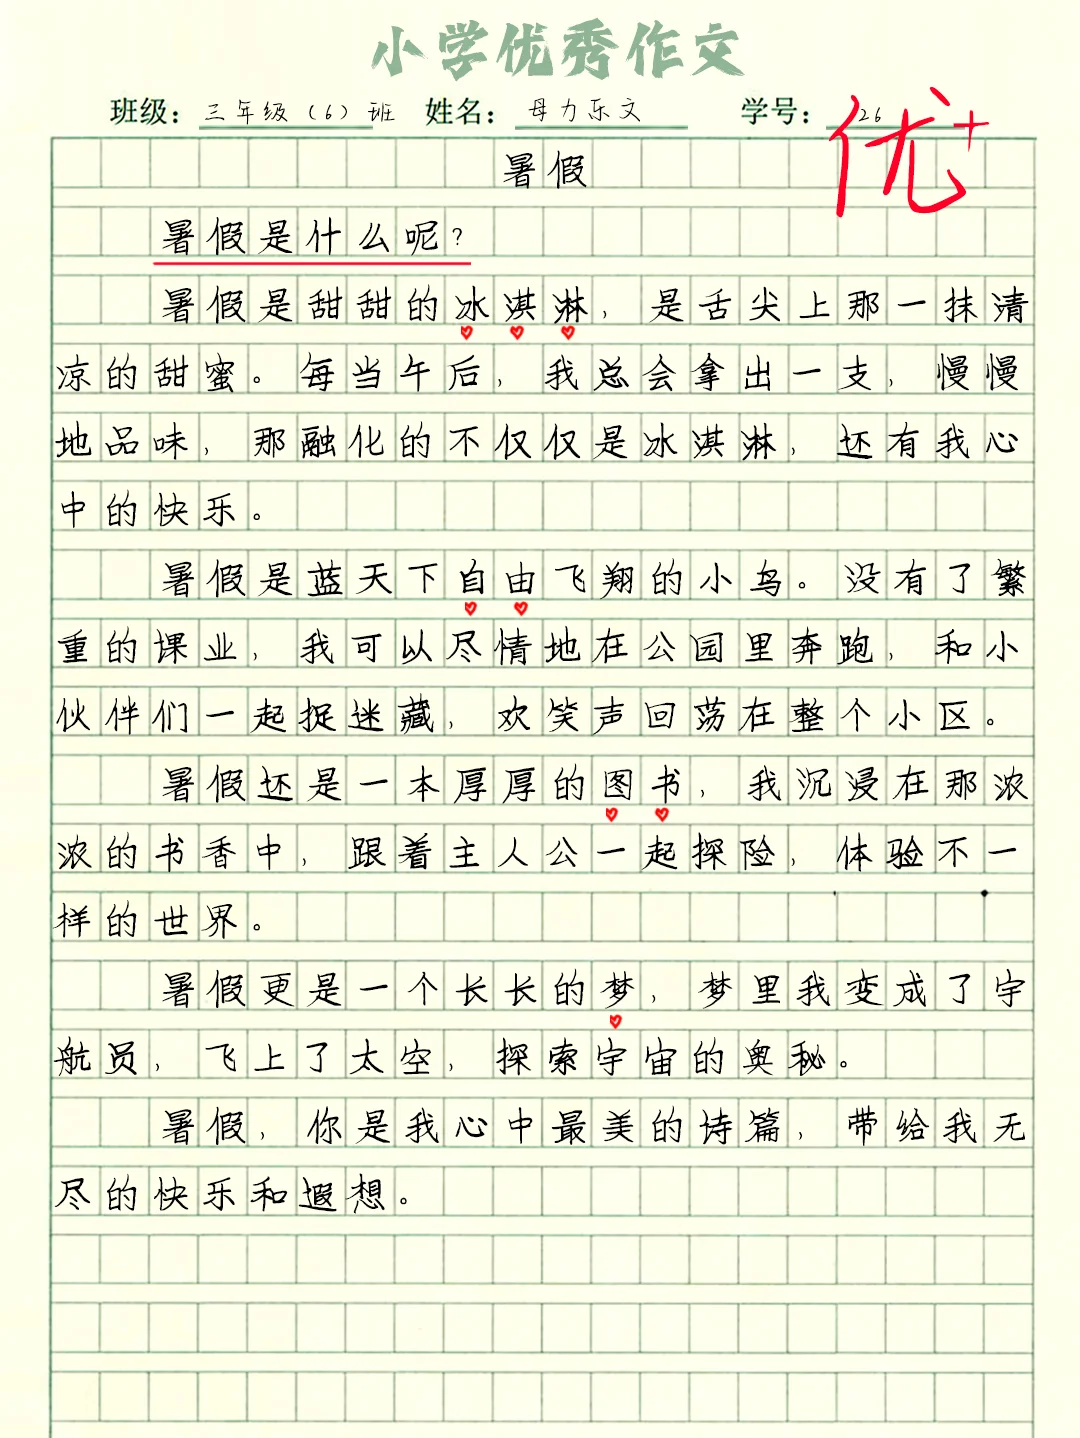 小学优秀作文
班级：三年级（6）班 姓名：母力乐文 学号：26
优+
暑假
暑假是什么呢？
暑假是甜甜的冰淇淋，是舌尖上那一抹清
凉的甜蜜。每当午后，我总会拿出一支，慢慢
地品味，那融化的不仅仅是冰淇淋，还有我心
中的快乐。
暑假是蓝天下自由飞翔的小鸟。没有了繁
重的课业，我可以尽情地在公园里奔跑，和小
伙伴们一起捉迷藏，欢笑声回荡在整个小区。
暑假还是一本厚厚的图书，我沉浸在那浓
浓的书香中，跟着主人公一起探险，体验不一
样的世界。
暑假更是一个长长的梦，梦里我变成了宇
航员，飞上了太空，探索宇宙的奥秘。
暑假，你是我心中最美的诗篇，带给我无
尽的快乐和遐想。